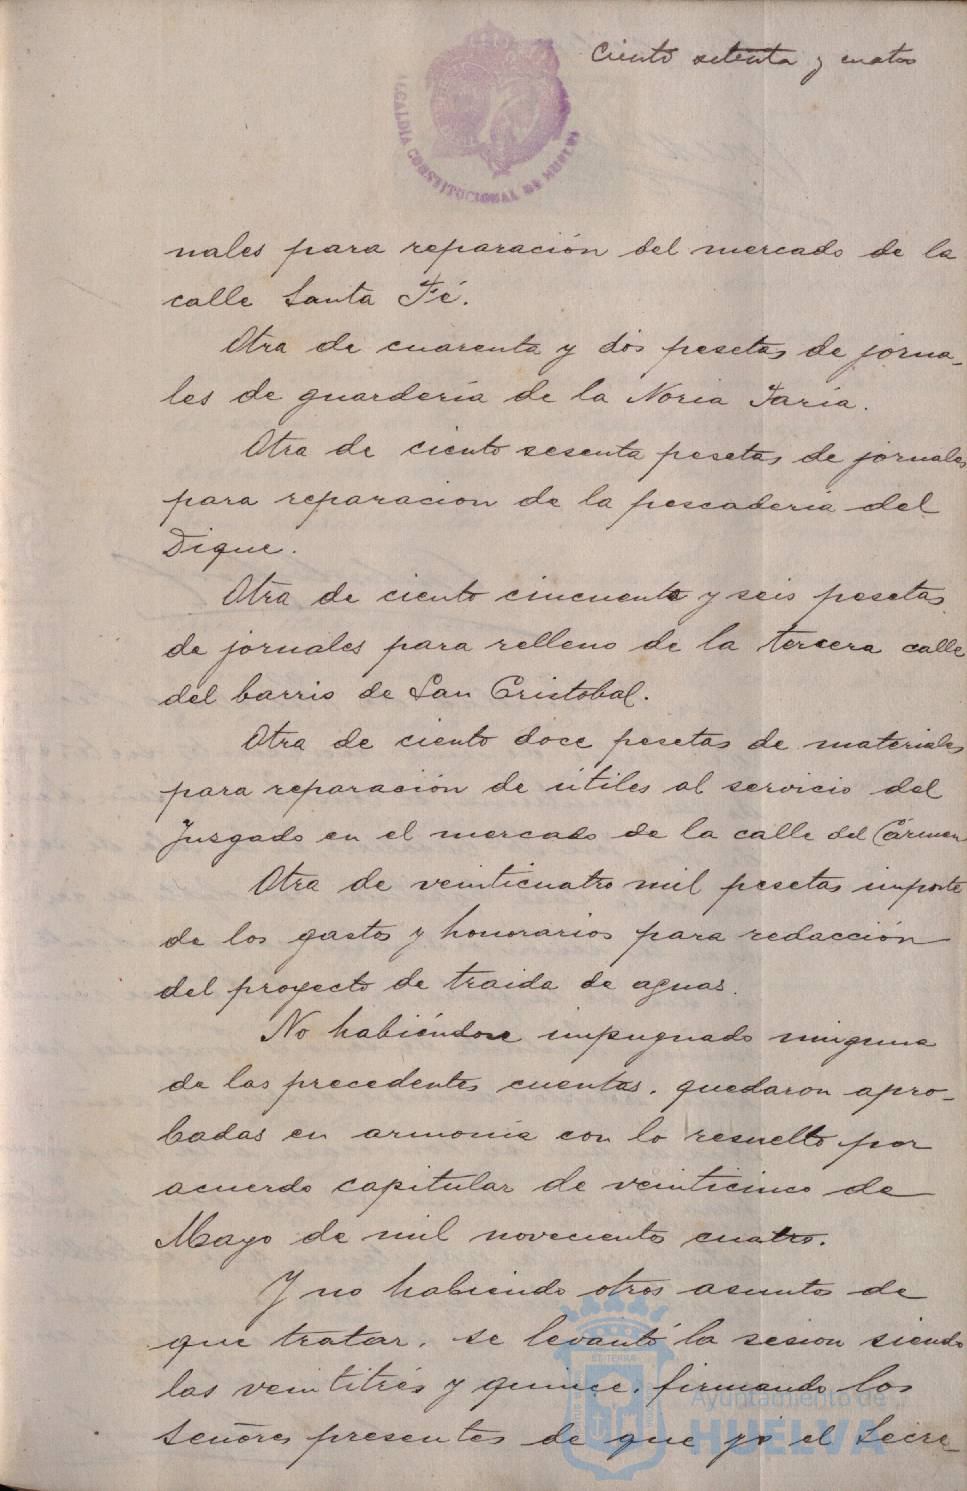 Ciento setenta y cuatro
ALCALDIA CONSTITUCIONAL DE HUELVA
nales para reparación del mercado de la
calle Santa Fé.
Otra de cuarenta y dos pesetas de jorna-
les de guardería de la Noria Faria.
Otra de ciento sesenta pesetas de jornales
para reparacion de la pescaderia del
Dique.
Otra de ciento cincuenta y seis pesetas
de jornales para relleno de la tercera calle
del barrio de San Cristobal.
Otra de ciento doce pesetas de materiales
para reparación de útiles al servicio del
Juzgado en el mercado de la calle del Cármen
Otra de veinticuatro mil pesetas importe
de los gastos y honorarios para redacción
del proyecto de traida de aguas.
No habiéndose impugnado ninguna
de las precedentes cuentas, quedaron apro-
badas en armonia con lo resuelto por
acuerdo capitular de veinticinco de
Mayo de mil novecientos cuatro.
Y no habiendo otros asuntos de
que tratar, se levantó la sesion siendo
las veintitrés y quince, firmando los
Señores presentes de que yo el Secre-
Ayuntamiento de
HUELVA